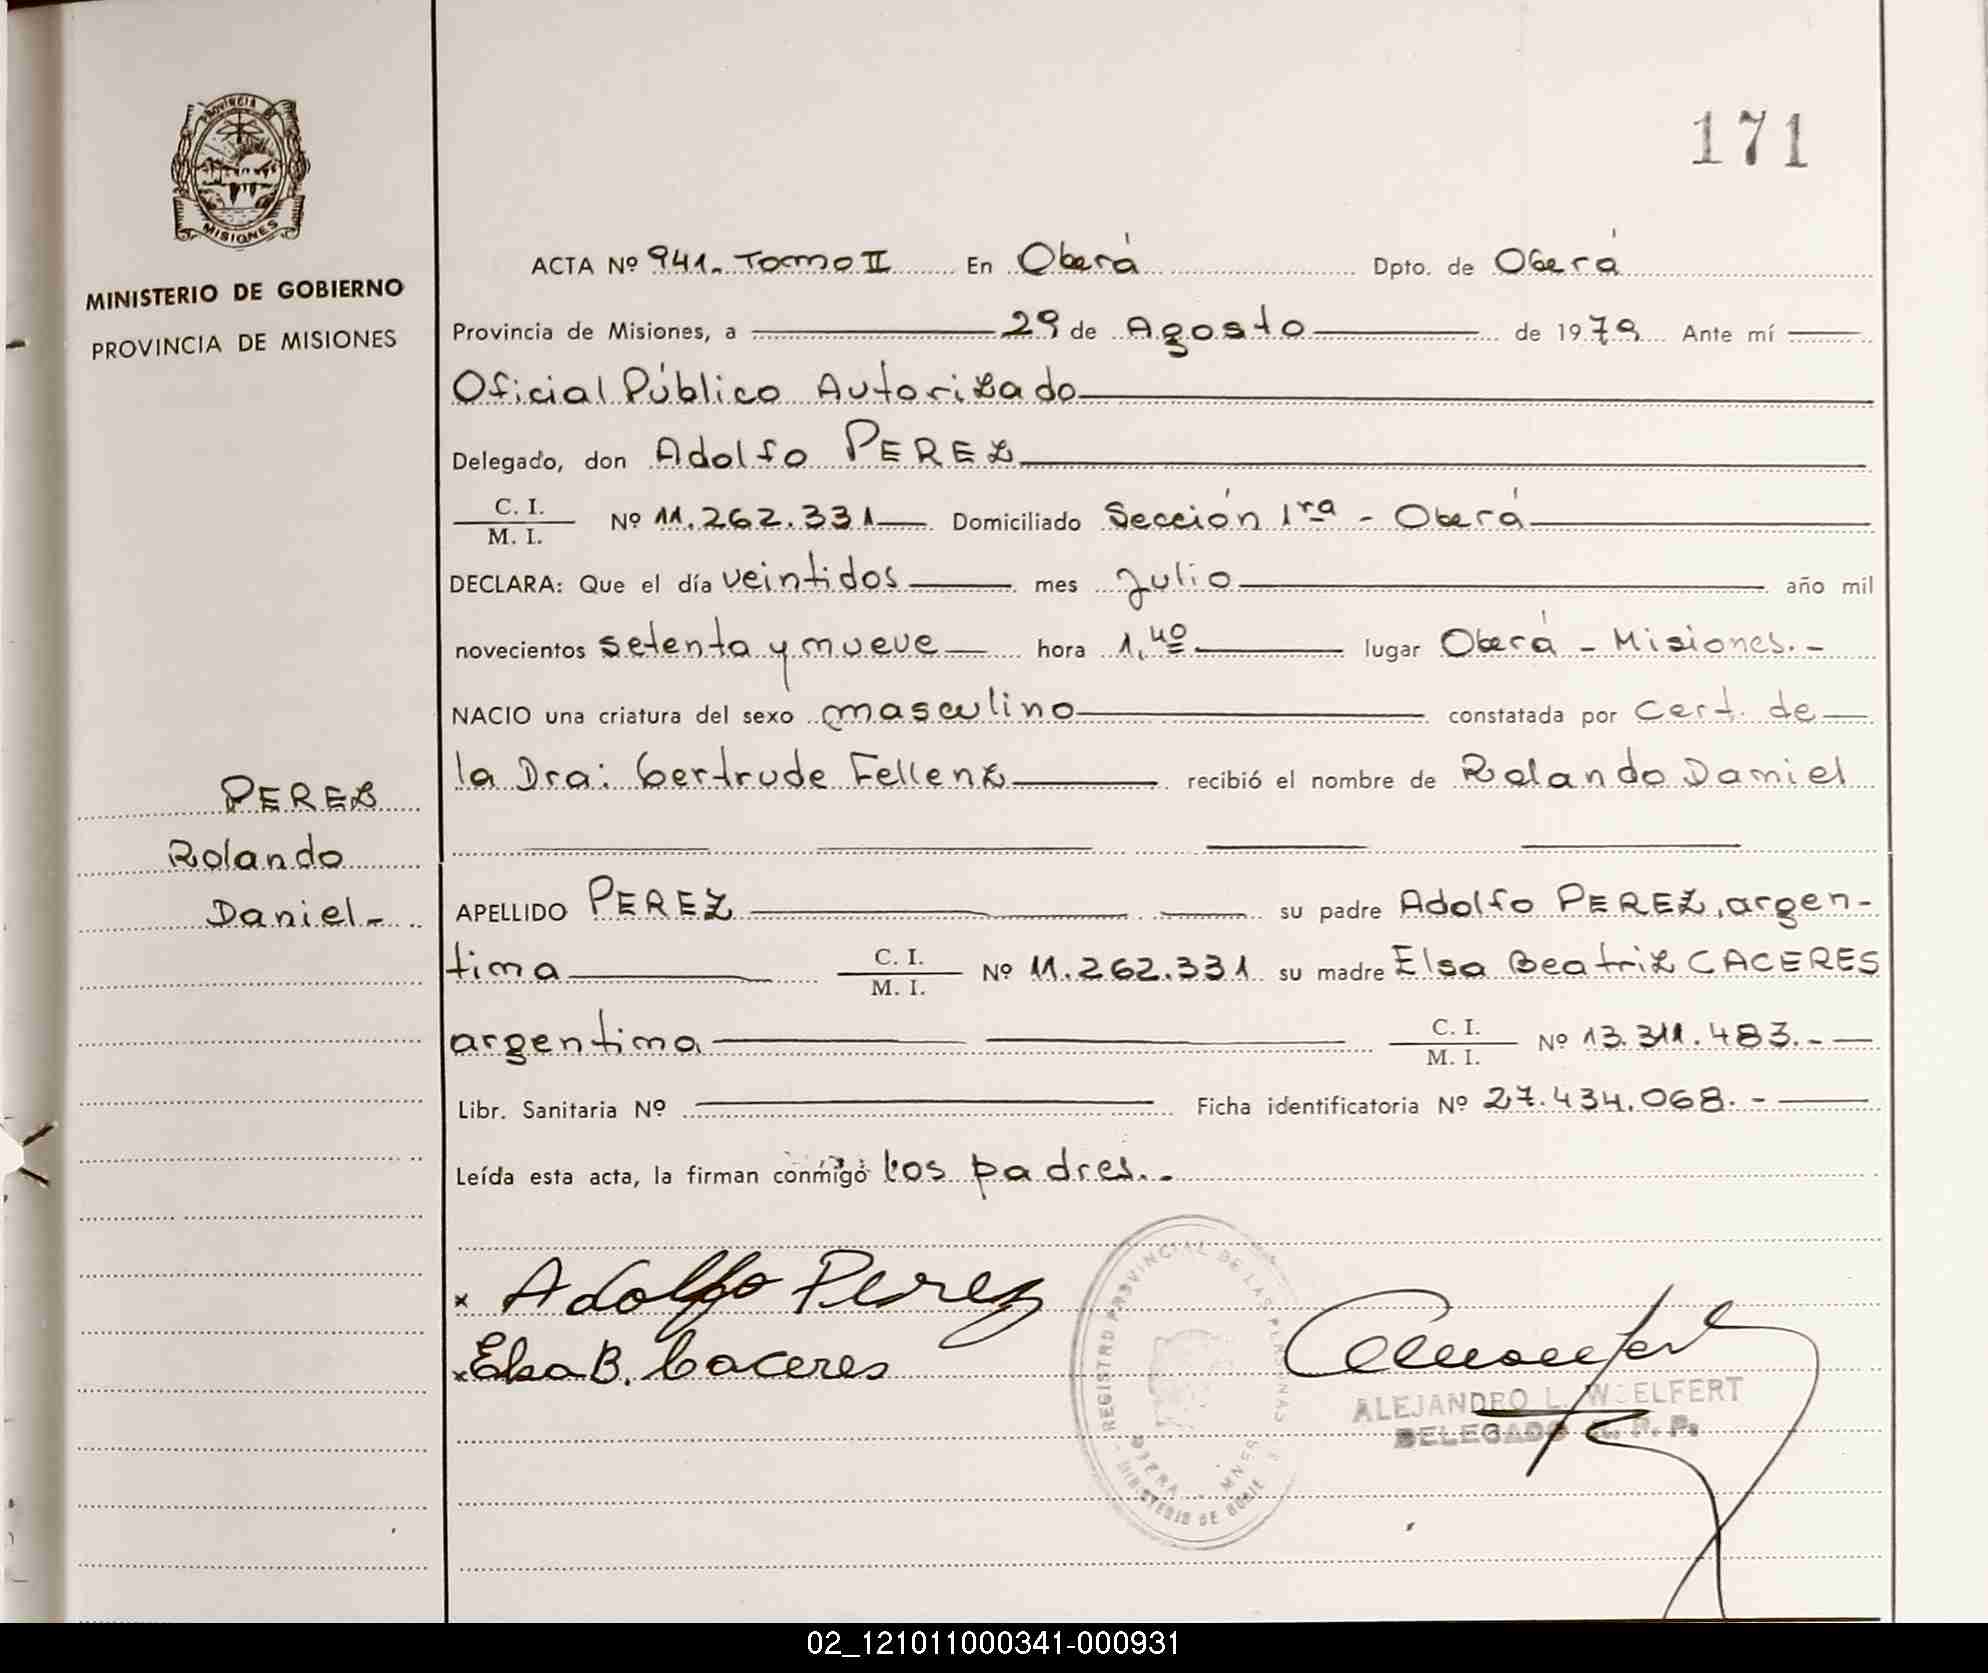 PROVINCIA DE
MISIONES
MINISTERIO DE GOBIERNO
PROVINCIA DE MISIONES
PEREZ
Rolando
Daniel-
171
ACTA Nº 941.- Tomo II En Oberá Dpto. de Oberá
Provincia de Misiones, a 29 de Agosto de 1979 Ante mí
Oficial Público Autorizado
Delegado, don Adolfo PEREZ
C. I. / M. I. Nº 11.262.331 Domiciliado Sección 1ra - Oberá
DECLARA: Que el día veintidos mes Julio año mil
novecientos setenta y nueve hora 1,40 lugar Oberá - Misiones.-
NACIO una criatura del sexo masculino constatada por Cert. de
la Dra: Gertrude Fellenz recibió el nombre de Rolando Daniel
APELLIDO PEREZ su padre Adolfo PEREZ, argen-
tina C. I. / M. I. Nº 11.262.331 su madre Elsa Beatriz CACERES
argentina C. I. / M. I. Nº 13.311.483.-
Libr. Sanitaria Nº Ficha identificatoria Nº 27.434.068.-
Leída esta acta, la firman conmigo los padres.-
x Adolfo Perez
x Elsa B. Caceres
REGISTRO PROVINCIAL DE LAS PERSONAS
MINISTERIO DE
ALEJANDRO L. WOELFERT
DELEGADO R. P. P.
02_121011000341-000931